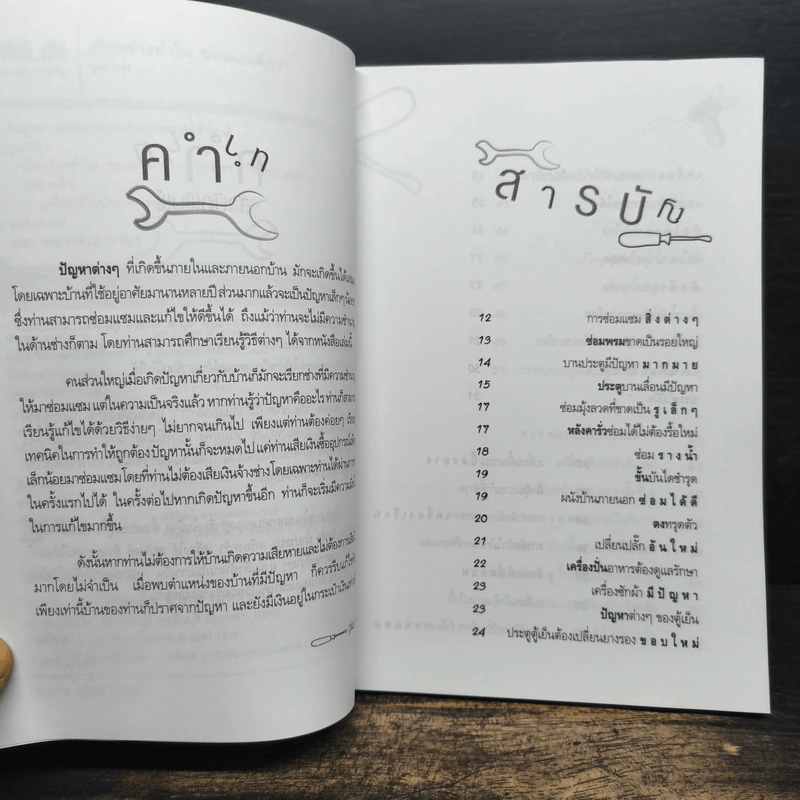 คำนำ
ปัญหาต่างๆ ที่เกิดขึ้นภายในและภายนอกบ้าน มักจะเกิดขึ้นได้
โดยเฉพาะบ้านที่ใช้อยู่อาศัยมานานหลายปี ส่วนมากแล้วจะเป็นปัญหาเล็กๆ
ซึ่งท่านสามารถซ่อมแซมและแก้ไขให้ดีขึ้นได้ ถึงแม้ว่าท่านจะไม่มีความ
ในด้านช่างก็ตาม โดยท่านสามารถศึกษาเรียนรู้วิธีต่างๆ ได้จากหนังสือเล่มนี้
คนส่วนใหญ่เมื่อเกิดปัญหาเกี่ยวกับบ้านก็มักจะเรียกช่างที่มีความ
ให้มาซ่อมแซม แต่ในความเป็นจริงแล้ว หากท่านรู้ว่าปัญหาคืออะไร ท่านก็
เรียนรู้แก้ไขได้ด้วยวิธีง่ายๆ ไม่ยากจนเกินไป เพียงแต่ท่านต้องค่อยๆ
เทคนิคในการทำให้ถูกต้อง ปัญหานั้นก็จะหมดไป แค่ท่านเสียเงินซื้ออุปกรณ์
เล็กน้อยมาซ่อมแซมโดยที่ท่านไม่ต้องเสียเงินจ้างช่าง โดยเฉพาะท่านได้ผ่าน
ในครั้งแรกไปได้ ในครั้งต่อไปหากเกิดปัญหาขึ้นอีก ท่านก็จะเริ่มมีความ
ในการแก้ไขมากขึ้น
ดังนั้นหากท่านไม่ต้องการให้บ้านเกิดความเสียหายและไม่ต้องการ
มากโดยไม่จำเป็น เมื่อพบตำแหน่งของบ้านที่มีปัญหา ก็ควรรีบแก้ไข
เพียงเท่านี้บ้านของท่านก็ปราศจากปัญหา และยังมีเงินอยู่ในกระเป๋า
สารบัญ
12 การซ่อมแซม สิ่งต่างๆ
13 ซ่อมพรมขาดเป็นรอยใหญ่
14 บานประตูมีปัญหา มากมาย
15 ประตูบานเลื่อนมีปัญหา
17 ซ่อมมุ้งลวดที่ขาดเป็น รูเล็กๆ
17 หลังคารั่วซ่อมได้ไม่ต้องรื้อใหม่
18 ซ่อม รางน้ำ
19 ขั้นบันไดชำรุด
19 ผนังบ้านภายนอก ซ่อมได้ดี
20 ตงทรุดตัว
21 เปลี่ยนปลั๊ก อันใหม่
22 เครื่องปั่นอาหารต้องดูแลรักษา
23 เครื่องซักผ้า มีปัญหา
23 ปัญหาต่างๆ ของตู้เย็น
24 ประตูตู้เย็นต้องเปลี่ยนยางรอง ขอบใหม่